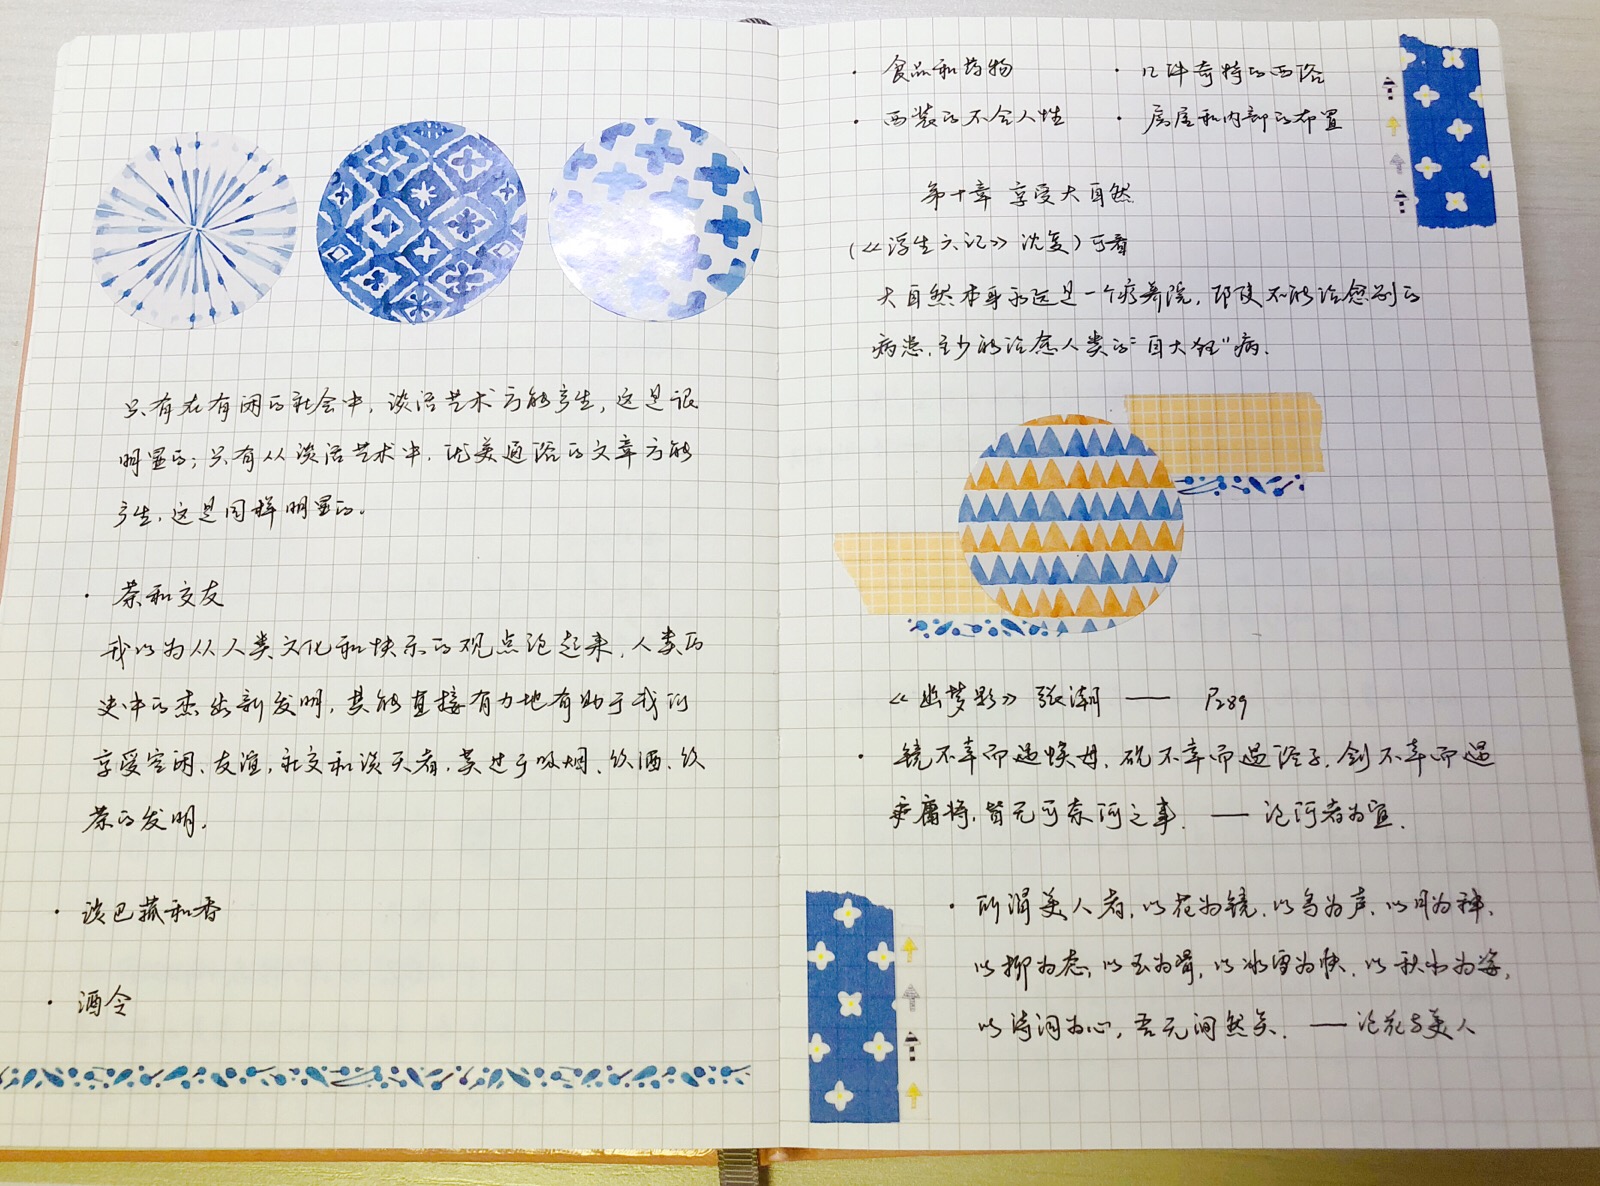 只有在有闲的社会中，谈话艺术方能产生，这是很
明显的；只有从谈话艺术中，优美通俗的文章方能
产生，这是同样明显的。
· 茶和交友
我以为从人类文化和快乐的观点论起来，人类历
史中的杰出新发明，其能直接有力地有助于我们
享受空闲、友谊，社交和谈天者，莫过于吸烟、饮酒、饮
茶的发明。
· 谈巴菰和香
· 酒令
· 食品和药物 · 几件奇特的西俗
· 西装的不合人性 · 房屋和内部的布置
第十章 享受大自然
(《浮生六记》沈复) 可看
大自然本身永远是一个疗养院，即使不能治愈别的
病患，至少能治愈人类的“自大狂”病。
《幽梦影》张潮 —— P289
· 镜不幸而遇嫫母，砚不幸而遇俗子，剑不幸而遇
庸将，皆无可奈何之事。 —— 论何者为宜.
· 所谓美人者，以花为镜，以鸟为声，以月为神，
以柳为态，以玉为骨，以冰雪为肤，以秋水为姿，
以诗词为心，吾无间然矣. —— 论花与美人